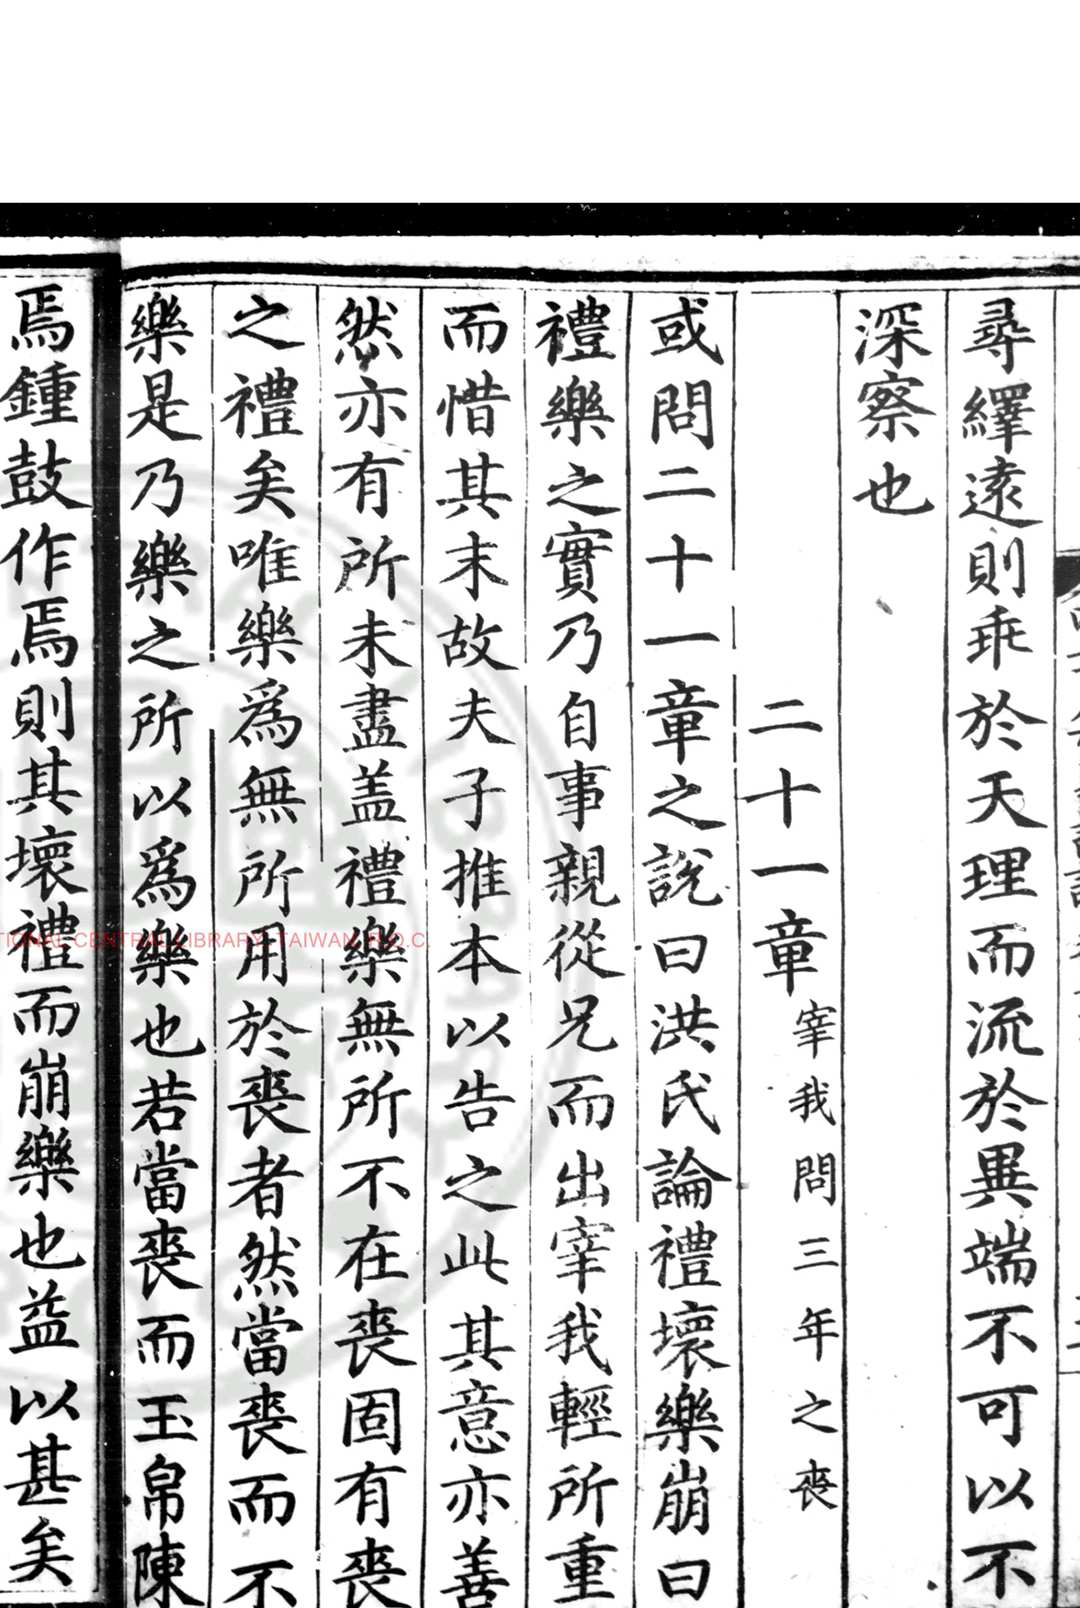 尋繹遠則乖於天理而流於異端不可以不
深察也
二十一章宰我問三年之喪
或問二十一章之說曰洪氏論禮壞樂崩曰
禮樂之實乃自事親從兄而出宰我輕所重
而惜其末故夫子推本以告之此其意亦善
然亦有所未盡盖禮樂無所不在喪固有喪
之禮矣唯樂爲無所用於喪者然當喪而不
樂是乃樂之所以爲樂也若當喪而玉帛陳
焉鍾鼓作焉則其壞禮而崩樂也益以甚矣
NATIONAL CENTRAL LIBRARY, TAIWAN, R.O.C.